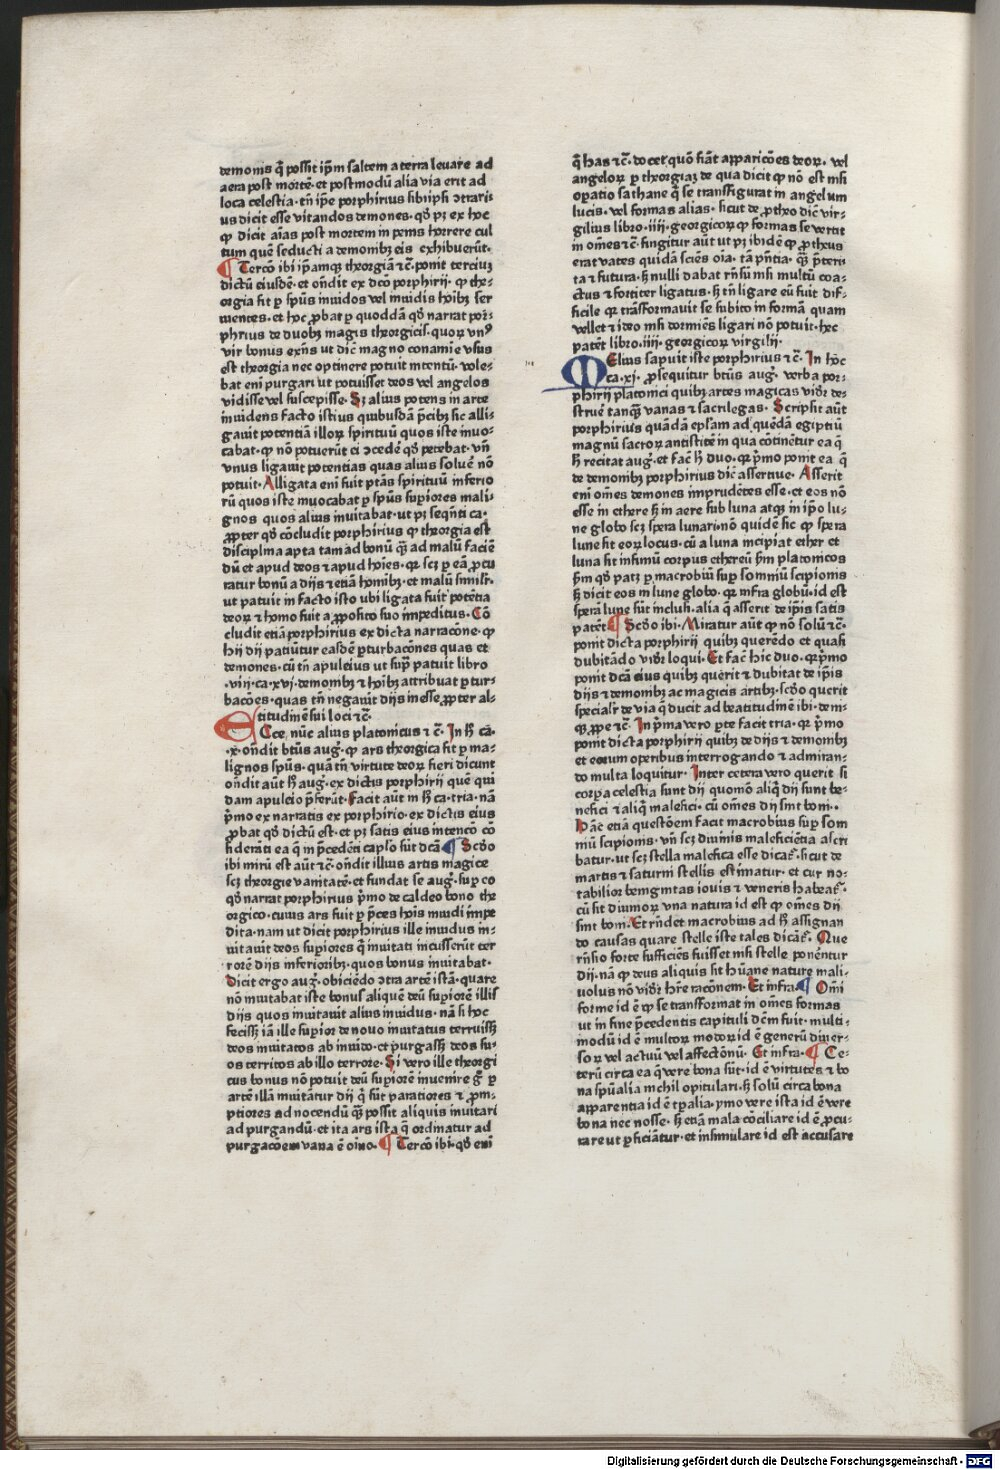 demonis q̄ possit ip̄m saltem a terra leuare ad
aera post mortē· et postmodū alia via erit ad
loca celestia· tn̄ ip̄e porphirius sibiipsi ↄtrari
us dicit esse vitandos demones· qd̕ pꝫ ex hoc
ꝙ dicit aīas post mortem in penis horrere cul
tum quē seducti a demonibꝫ eis exhibuerūt·
¶ Tercō ibi ip̄amqꝫ theorgiā ⁊c̄· ponit terciuꝫ
dictū eiusdē· et on̄dit ex dcō porphirij· ꝙ the⸗
orgia fit ꝑ sp̄us inuidos vel inuidis hoībꝫ ser
uientes· et hoc ꝓbat ꝑ quoddā qd̕ narrat por⸗
phrius de duobꝫ magis theorgicis· quoꝝ vnꝰ
vir bonus exn̄s ut dic̄ magno conamīe vsus
est theorgia nec optinere potuit intentū· vole⸗
bat enī purgari ut potuisset deos vel angelos
vidisse vel suscepisse· Sꝫ alius potens in arte
inuidens facto istius quibusdā p̄cibꝫ sic alli⸗
gauit potentiā illoꝝ spirituū quos iste inuo⸗
cabat· ꝙ nō potuerūt ei ↄcedē qd̕ petebat· vn̄
vnus ligauit potentias quas alius soluē nō
potuit· Alligata enī fuit ptās spirituū inferio
rū quos iste inuocabat ꝑ sp̄us suꝑiores mali⸗
gnos quos alius inuitabat· ut pꝫ seqn̄ti ca·
ꝓpter qd̕ cōcludit porphirius ꝙ theorgia est
disciplina apta tam ad bonū q̄ꝫ ad malū faciē
dū et apud deos ⁊ apud hoīes· qꝛ scꝫ ꝑ eā ꝓcu
ratur bonū a dijs ⁊ etiā homībꝫ· et malū simil'r·
ut patuit in facto isto ubi ligata fuit potētia
deoꝝ ⁊ homo fuit a ꝓposito suo impeditus· Cō
cludit etiā porphirius ex dicta narracōne· ꝙ
hij dij patiūtur easdē ꝑturbacōnes quas et
demones· cū tn̄ apuleius ut supͣ patuit libro
·viij·ca·xvj·demonibꝫ ⁊ hoībꝫ attribuat ꝑtur⸗
bacōes· quas tn̄ negauit dijs inesse ꝓpter al⸗
titudinē sui loci ⁊c̄·
ECce nūc alius platonicus ⁊ c̄· In hͦ ca·
·x·on̄dit btūs aug̕· ꝙ ars theorgica fit ꝑ ma⸗
lignos sp̄us· quā tn̄ virtute deoꝝ fieri dicunt
on̄dit aūt hͦ aug̕· ex dictis porphirij quē qui
dam apuleio p̄ferūt· Facit aūt in hͦ ca·tria· nā
pͥmo ex narratis ex porphirio· ex dictis eius
ꝓbat qd̕ dictū est· et pꝫ satis eius intencō cō
siderāti ea q̄ in p̄cedēti cap̄lo sūt dcā ¶ Scd̕o
ibi mirū est aūt ⁊c̄· on̄dit illius artis magice
scꝫ theorgie vanitatē· et fundat se aug̕· suꝑ eo
qd̕ narrat porphirius pͥmo de caldeo bono the
orgico· cuius ars fuit ꝑ p̄ces hoīs inuidi impe
dita· nam ut dicit porphirius ille inuidus in⸗
uitauit deos suꝑiores q̄ inuitati incusserūt ter
rorē dijs inferioribꝫ· quos bonus inuitabat·
Dicit ergo aug̕· obiciēdo ↄtra artē istā· quare
nō inuitabat iste bonus aliquē deū suꝑiorē illis
dijs quos inuitauit alius inuidus· nā si hoc
fecissꝫ iā ille suꝑior de nouo inuitatus terruissꝫ
deos inuitatos ab inuido· et purgassꝫ deos su⸗
os territos ab illo terrore· Si vero ille theorgi
cus bonus nō potuit deū suꝑiorē inuenire gͦ ꝑ
artē illā inuitātur dij q̄ sūt paratiores ⁊ ꝓm⸗
ptiores ad nocendū q̄ꝫ possit aliquis inuitari
ad purgandū· et ita ars ista q̄ ordinatur ad
purgacōem vana ē oīno· ¶ Tercō ibi· qd̕ enī
q̄ has ⁊c̄· docet quō fiāt apparicōes deoꝝ· vel
angeloꝝ ꝑ theorgiaꝫ de qua dicit ꝙ nō est nisi
oꝑatio sathane q̄ se transfigurat in angelum
lucis· vel formas alias· sicut de ꝓtheo dic̄ vir⸗
gilius libro·iiij·georgicoꝝ ꝙ formas se vertit
in om̄es ⁊c̄· fingitur aūt ut pꝫ ibidē ꝙ ꝓtheus
erat vates quidā sciēs oīa· tā pn̄tia· q̄ꝫ p̄teri⸗
ta ⁊ futura· sꝫ nulli dabat rn̄sū nisi multū coa⸗
ctus ⁊ fortiter ligatus· sꝫ tn̄ ligare eū fuit dif⸗
ficile qꝛ trāsformauit se subito in formā quam
vellet ⁊ ideo nisi dormiēs ligari nō potuit· hec
patēt libro·iiij·georgicoꝝ virgilij·
MElius sapuit iste porphirius ⁊ c̄· In hͦc
ca·xj· ꝓsequitur btūs aug̕· verba por⸗
phirij platonici quibꝫ artes magicas vid̕r de⸗
struē tanqͣꝫ vanas ⁊ sacrilegas· Scripsit aūt
porphirius quādā ep̄lam ad quēdā egiptiū
magnū sacroꝝ antistitē in qua cōtinētur ea q̄
hͦ recitat aug̕· et fac̄ hͦ duo· qꝛ pͥmo ponit ea q̄
de demonibꝫ porphirius dic̄ assertiue· Asserit
enī om̄es demones imprudētes esse· et eos nō
esse in ethere sꝫ in aere sub luna atqꝫ in ip̄o lu⸗
ne globo scꝫ spera lunari· nō quidē sic ꝙ spera
lune sit eoꝝ locus· cū a luna incipiat ether et
luna sit infimū corpus ethereū sm̄ platonicos
sm̄ qd̕ patꝫ ꝑ macrobiū suꝑ somniū scipionis
sꝫ dicit eos in lune globo· qꝛ infra globū· id est
sperā lune sūt inclusi· alia q̄ asserit de ip̄is satis
patēt ¶ Scd̕o ibi· Miratur aūt ꝙ nō solū ⁊c̄·
ponit dicta porphirij quibꝫ querēdo et quasi
dubitādo vid̕r loqui· Et fac̄ hic duo· qꝛ pͥmo
ponit dcā eius quibꝫ querit ⁊ dubitat de ip̄is
dijs ⁊ demonibꝫ ac magicis artibꝫ· scd̕o querit
special'r de via q̄ ducit ad beatitudinē ibi· deni⸗
qꝫ ꝓpe ⁊c̄· In pͥma vero ꝑte facit tria· qꝛ pͥmo
ponit dicta porphirij quibꝫ de dijs ⁊ demonibꝫ
et eorum operibus interrogando ⁊ admiran⸗
do multa loquitur· Inter cetera vero querit si
corꝑa celestia sunt dij quomō aliq̄ dij sunt be⸗
nefici ⁊ aliq̄ malefici· cū om̄es dij sint boni··
Hāc etiā questōem facit macrobius suꝑ som
niū scipionis· vn̄ scꝫ diuinis maleficiētia ascri
batur· ut scꝫ stella malefica esse dicat̄· sicut de
martis ⁊ saturni stellis estimatur· et cur no⸗
tabilior benignitas iouis ⁊ veneris habeat̄·
cū sit diuinoꝝ vna natura id est ꝙ om̄es dij
sint boni· Et rn̄det macrobius ad hͦ assignan
do causas quare stelle iste tales dicāt̄· Que
rn̄sio forte sufficiēs fuisset nisi stelle ponētur
dij· nā ꝙ deus aliquis sit hūane nature mali⸗
uolus nō vid̕r hr̄e racōnem· Et infra ¶ Om̄i
forme id ē ꝙ se transformat in om̄es formas
ut in fine p̄cedentis capituli dc̄m fuit· multi⸗
modū id ē multoꝝ modoꝝ id ē generū diuer⸗
soꝝ vel actuū vel affectōnū· Et infra· ¶ Ce⸗
terū circa ea q̄ vere bona sūt· id ē virtutes ⁊ bo
na spūalia nichil opitulari· sꝫ solū circa bona
apparentia id ē tꝑalia· ymo vere ista id ē vere
bona nec nosse· sꝫ etiā mala cōciliare id ē ꝓcu⸗
rare ut ꝑficiātur· et insimulare id est accusare
Digitalisierung gefördert durch die Deutsche Forschungsgemeinschaft - DFG